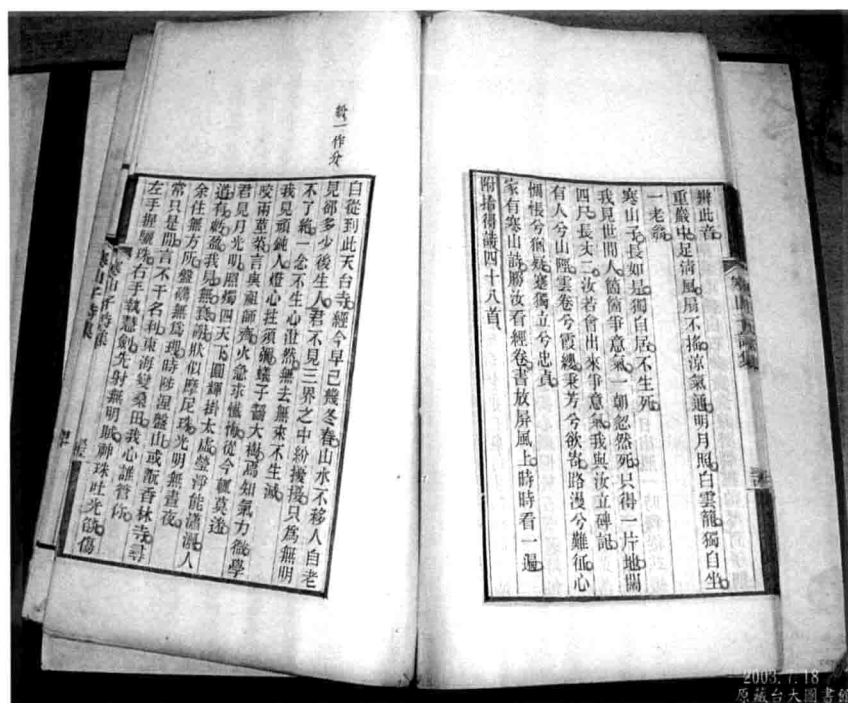 辨此音
重巖中足清風扇不搖涼氣通明月照白雲籠獨自坐
一老翁
寒山子長如是獨自居不生死
我見世間人箇箇爭意氣一朝忽然死只得一片地闊
四尺長丈二汝若會出來爭意氣我與汝立碑記
有人兮山陘雲卷兮霞纓秉芳兮欲寄路漫兮難征心
惆悵兮狐疑蹇獨立兮忠貞
家有寒山詩勝汝看經卷書放屏風上時時看一遍
附拾得詩四十八首
紛一作分
自從到此天台寺經今早已幾冬春山水不移人自老
見卻多少後生人君不見三界之中紛擾擾只爲無明
不了絕一念不生心澄然無去無來不生滅
我見頑鈍人燈心拄須彌蟻子齧大樹焉知氣力微學
咬兩莖菜言與祖師齊火急求懺悔從今輒莫迷
君見月光明照燭四天下圓輝掛太虛瑩淨能瀟灑人
道有虧盈我見無衰謝狀似摩尼珠光明無晝夜
余住無方所盤礴無爲理時陟涅盤山或翫香林寺尋
常只是閒言不干名利東海變桑田我心誰管你
左手握驪珠右手執慧劍先射無明賊神珠吐光燄傷
寒山子詩集
寒山子詩集
2003.7.18
原藏台大圖書館